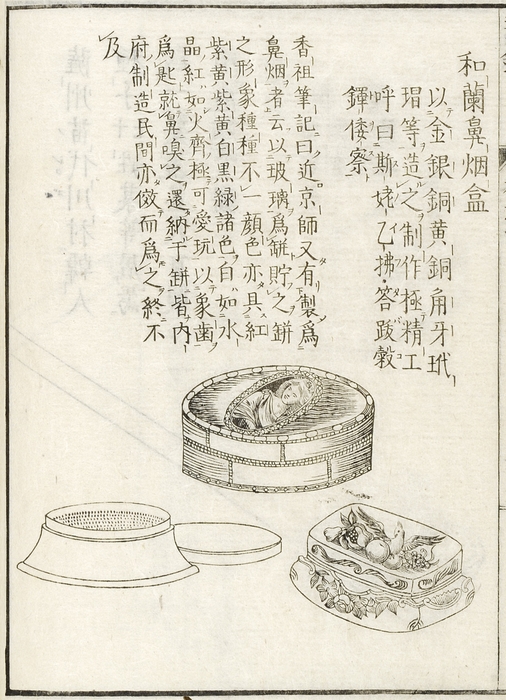 和蘭鼻烟盒
以金銀銅黄銅角牙玳
瑁等造之制作極精工
呼曰斯姥乙拂答跋穀
鐸倭察
香祖筆記曰近京師又有製為
鼻烟者云以玻璃為缾貯之缾
之形象種種不一顔色亦具紅
紫黄白黒緑諸色白如水
晶紅如火齊極可愛玩以象齒
為匙就鼻嗅之還納于缾皆内
府制造民間亦倣而為之終不
及